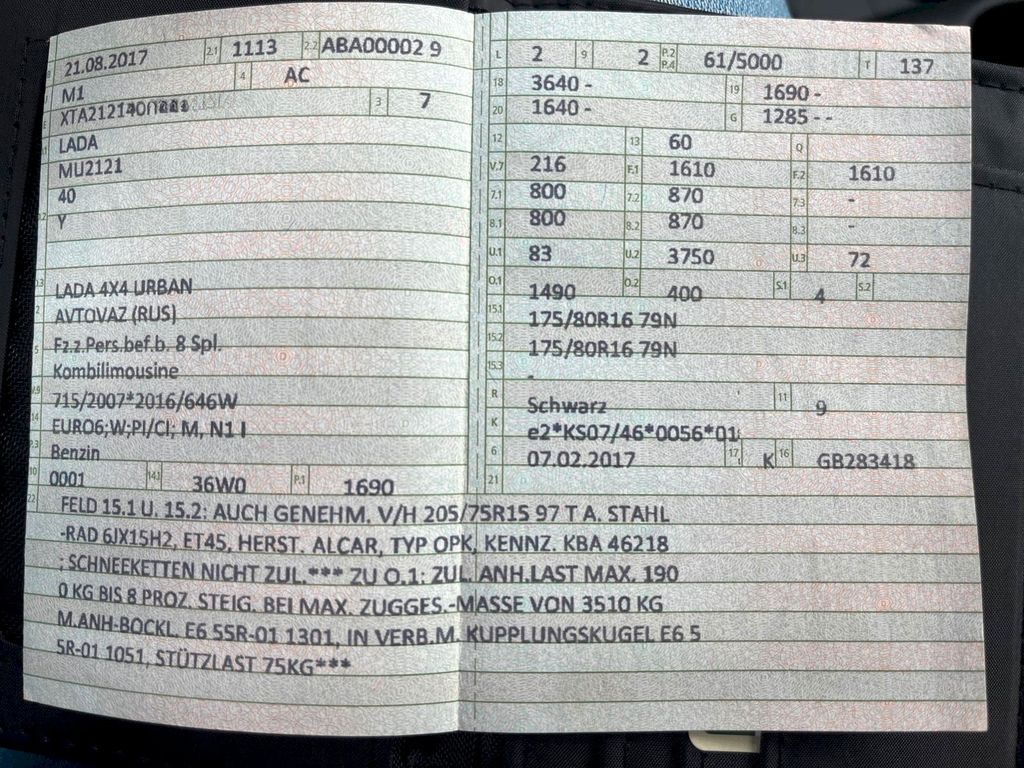 B 21.08.2017 2.1 1113 2.2 ABA00002 9
M1 4 AC
3 7
LADA
MU2121
40
Y
LADA 4X4 URBAN
AVTOVAZ (RUS)
Fz.z.Pers.bef.b. 8 Spl.
Kombilimousine
V.9 715/2007*2016/646W
14 EURO6;W;PI/CI; M, N1 I
P.3 Benzin
10 0001 14.1 36W0 P.1 1690
L 2 9 2 P.2 P.4 61/5000 T 137
18 3640 - 19 1690 -
20 1640 - G 1285 - -
12 13 60 Q
V.7 216 F.1 1610 F.2 1610
7.1 800 7.2 870 7.3 -
8.1 800 8.2 870 8.3 -
U.1 83 U.2 3750 U.3 72
O.1 1490 O.2 400 S.1 4 S.2
15.1 175/80R16 79N
15.2 175/80R16 79N
15.3 -
R Schwarz 11 9
K e2*KS07/46*0056*01
6 07.02.2017 17 K 16 GB283418
21
22 FELD 15.1 U. 15.2: AUCH GENEHM. V/H 205/75R15 97 T A. STAHL
-RAD 6JX15H2, ET45, HERST. ALCAR, TYP OPK, KENNZ. KBA 46218
; SCHNEEKETTEN NICHT ZUL.*** ZU O.1: ZUL. ANH.LAST MAX. 190
0 KG BIS 8 PROZ. STEIG. BEI MAX. ZUGGES.-MASSE VON 3510 KG
M.ANH-BOCKL. E6 55R-01 1301, IN VERB.M. KUPPLUNGSKUGEL E6 5
5R-01 1051, STÜTZLAST 75KG***